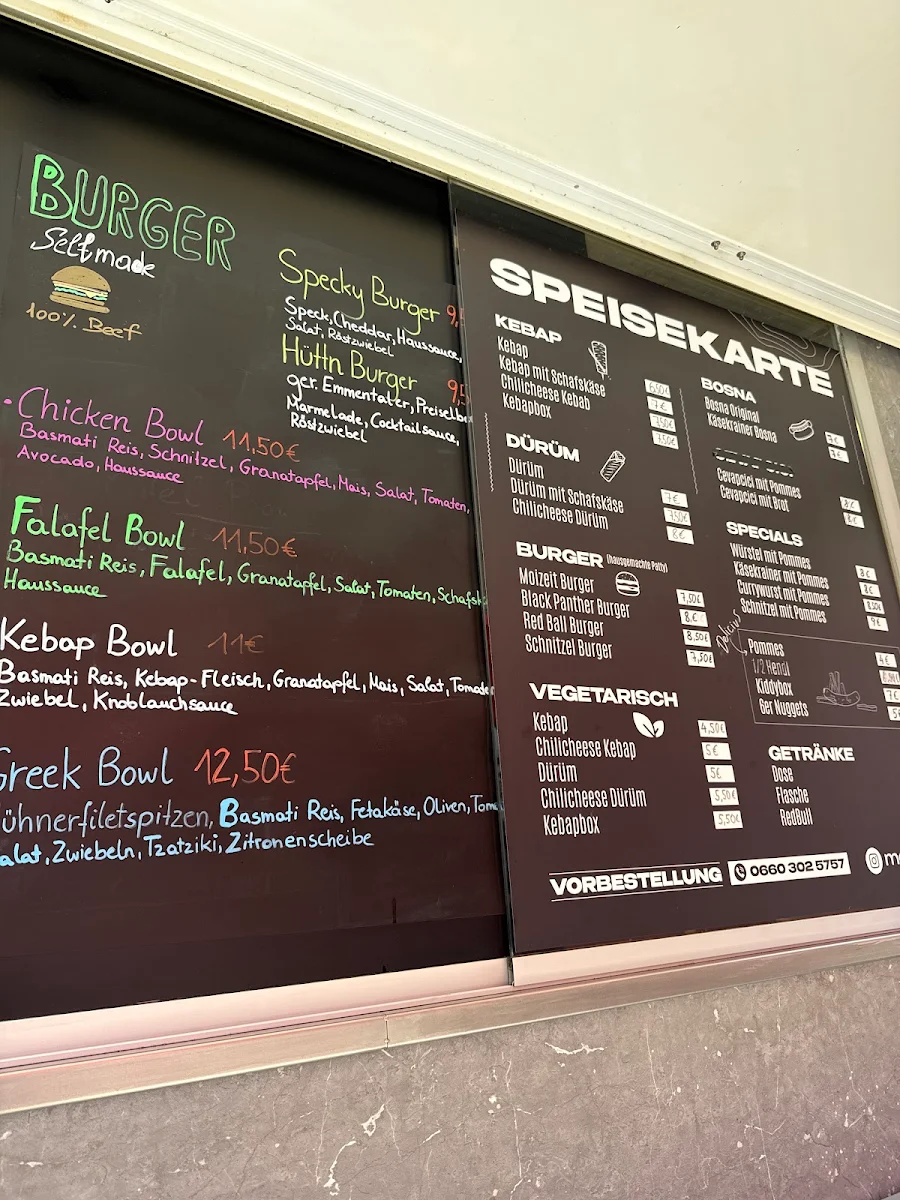 BURGER
Selfmade
100% Beef
Specky Burger
Speck, Cheddar, Haussauce,
Salat, Röstzwiebel
Hüttn Burger
ger. Emmentaler,
Marmelade, Cocktailsauce,
Röstzwiebel
Chicken Bowl 11,50€
Basmati Reis, Schnitzel, Granatapfel, Mais, Salat, Tomaten,
Avocado, Haussauce
Falafel Bowl 11,50€
Basmati Reis, Falafel, Granatapfel, Salat, Tomaten,
Haussauce
Kebap Bowl 11€
Basmati Reis, Kebap-Fleisch, Granatapfel, Mais, Salat,
Zwiebel, Knoblauchsauce
Greek Bowl 12,50€
Basmati Reis, Fetakäse, Oliven,
Zwiebeln, Tzatziki, Zitronenscheibe
SPEISEKARTE
KEBAP
Kebap
Kebap mit Schafskäse 7€
Chilicheese Kebab
Kebapbox 7,50€
DÜRÜM
Dürüm 7€
Dürüm mit Schafskäse 7,50€
Chilicheese Dürüm 8€
BURGER (hausgemachte Patty)
Moizeit Burger 7,50€
Black Panther Burger 8,€
Red Ball Burger 8,50€
Schnitzel Burger 7,50€
VEGETARISCH
Kebap 4,50€
Chilicheese Kebap 5€
Dürüm 5€
Chilicheese Dürüm 5,50€
Kebapbox 5,50€
BOSNA
Bosna Original 7€
Käsekrainer Bosna 7€
Cevapcici mit Pommes 8€
Cevapcici mit Brot 8€
SPECIALS
Würstel mit Pommes 8€
Käsekrainer mit Pommes 8€
Currywurst mit Pommes 8,50€
Schnitzel mit Pommes 9€
Pommes 4€
1/2 Hendl
Kiddybox 7€
6er Nuggets
GETRÄNKE
Dose
Flasche
RedBull
VORBESTELLUNG 0660 302 5757